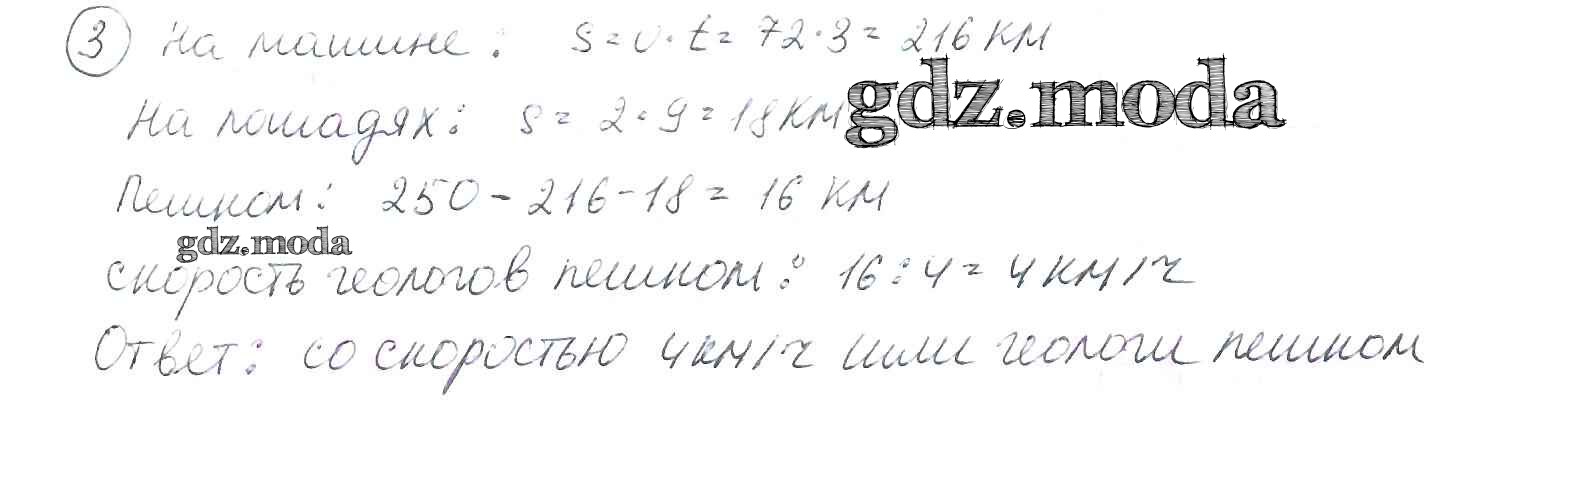 3 На машине: s = v · t = 72 · 3 = 216 км
gdz.moda
На лошадях: s = 2 · 9 = 18 км
Пешком: 250 - 216 - 18 = 16 км
gdz.moda
скорость геологов пешком: 16 : 4 = 4 км/ч
Ответ: со скоростью 4 км/ч шли геологи пешком